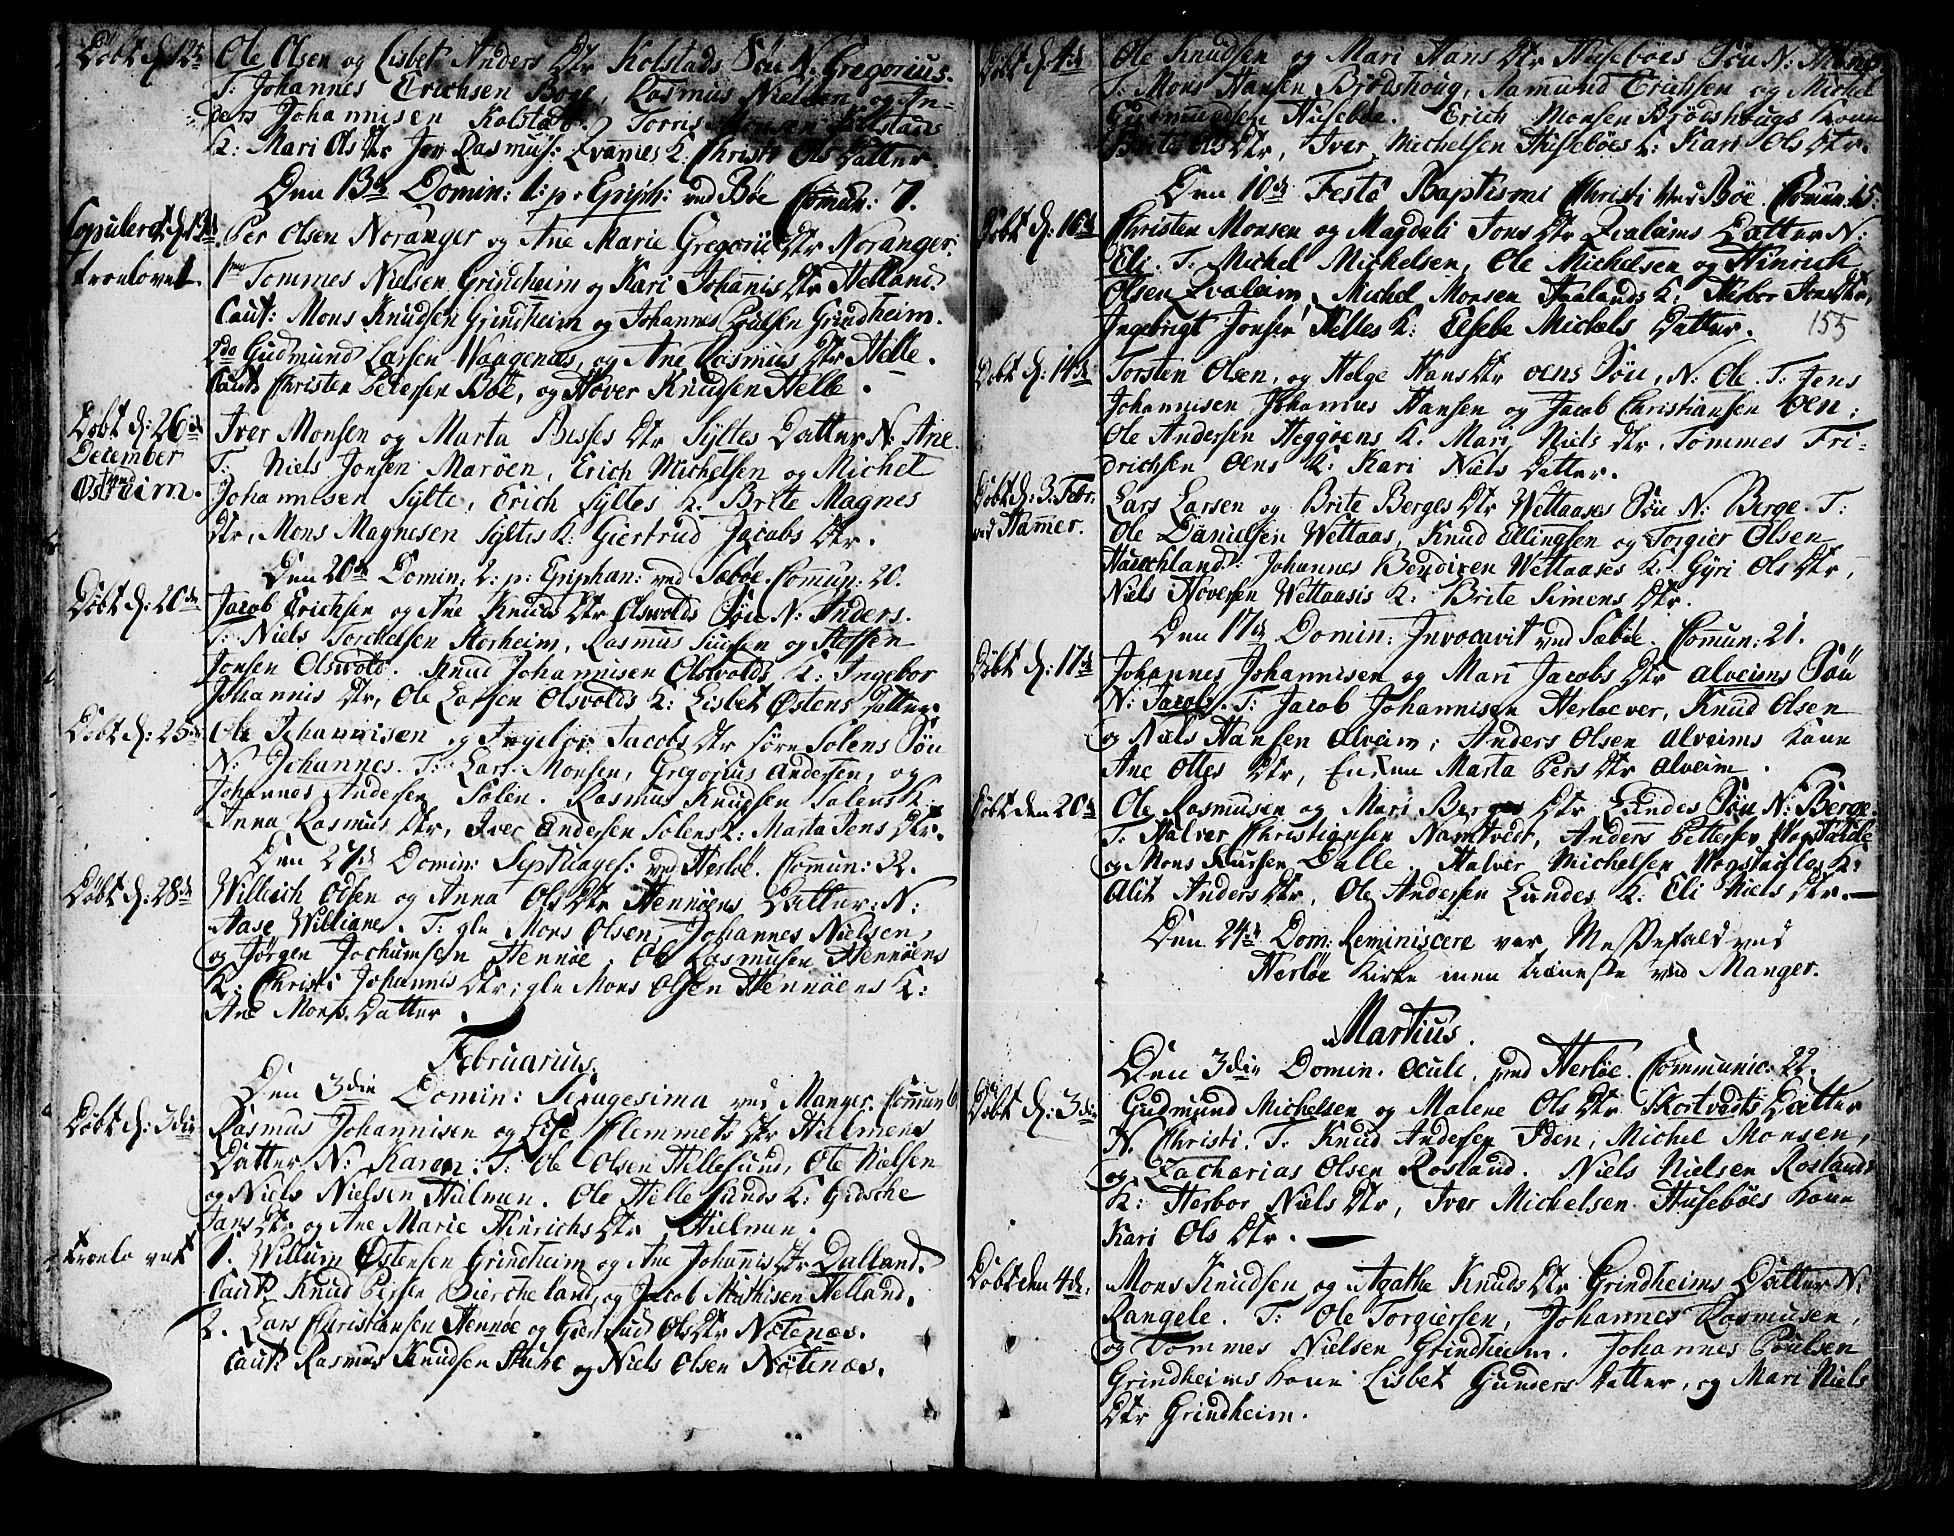 Døbt d: 12te
Ole Olsen og Lisbet Anders Dtr Kolstads Søn N: Gregorius.
T: Johannes Erichsen Boge, Rasmus Nielsen og An-
ders Johannisen Kolstad. Torris Monsen Kolstads
K: Mari Ols Dtr Jon Rasmus: Qvames K: Christi Ols Datter.
Den 13de Domin: 1: p: Epiph: ved Bøe Comun: 7.
Copuleret d: 13de
Per Olsen Noranger og Ane Marie Gregorii Dtr Noranger.
troelovet
1mo Tommes Nielsen Grindheim og Kari Johannis Dtr Helland.
Caut: Mons Knudsen Grindheim og Johannes Poulsen Grindheim.
2do Gudmund Larsen Vaagenæs, og Ane Rasmus Dtr Helle.
Caut: Christen Petersen Bøe, og Hover Knudsen Helle.
Døbt d: 26de
December
Østreim.
Iver Monsen og Marta Besses Dtr Syltes Datter N: Ane.
T: Niels Jonsen Marøen, Erich Michelsen og Michel
Johannisen Sylte, Erich Syltes K. Brite Magnes
Dtr, Mons Magnesen Syltes K: Giertrud Jacobs Dtr.
Den 20de Domin: 2: p: Epiphan: ved Sæbøe. Comun: 20.
Døbt d: 20de
Jacob Erichsen og Ane Knuds Dtr Olsvolds Søn N: Anders.
T: Niels Torchelsen Storheim, Rasmus Iversen og Steffen
Jonsen Olsvold. Knud Johannisen Olsvolds K: Ingebor
Johannis Dtr, Ole Larsen Olsvolds K: Lisbet Østens Datter.
Døbt d: 25de
Ole Johannisen og Ingebor Jacobs Dtr søre Solens Søn
N: Johannes. T: Lars Monsen, Gregorius Andersen, og
Johannes Andersen Solen. Rasmus Knudsen Solens K:
Anna Rasmus Dtr, Iver Andersen Solens K: Marta Jens Dtr.
Den 27de Domin: Septuages: ved Herløe. Comun: 32.
Døbt d: 28de
Willich Odsen og Anna Ols Dtr Hennøens Datter: N:
Aase Williane. T: gle Mons Olsen, Johannes Nielsen,
og Jørgen Jochumsen Hennøe. Ole Rasmusen Hennøens
K: Christi Johannis Dtr, gle Mons Olsen Hennøens K:
Ane Mons Datter.
Februarius.
Den 3die Domin: Sexagesima ved Manger. Comun 6
Døbt d: 3die
Rasmus Johannisen og Lise Flemmets Dtr Hielmens
Datter N: Karen: T: Ole Olsen Hillesund, Ole Nielsen
og Niels Nielsen Hielmen. Ole Hellesunds K: Gidsche
Jans Dtr og Ane Marie Hinrichs Dtr Hielmen.
troelovet
1. Willum Østensen Grindheim og Ane Johannis Dtr Dalland.
Caut: Knud Persen Biercheland, og Jacob Mathisen Helland.
2. Lars Christiansen Hennøe og Giertrud Ols Dtr Nøtenæs.
Caut: Rasmus Knudsen Huse og Niels Olsen Nøtenæs.
Døbt d: 4de
Ole Knudsen og Mari Hans Dtr Husebøes Søn N:
T: Mons Hansen Brødshoug, Aamund Erichsen og Michel
Gudmundsen Husebøe. Erich Monsen Brødshougs Kone
Brite Ols Dtr, Iver Michelsen Husebøes K: Kari Ols Dtr.
Den 10de Festo Baptismi Christi ved Bøe. Comun: 15:
Døbt d: 10de
Christen Monsen og Magdeli Jons Dtr Qvalums Datter N:
Eli. T: Michel Michelsen, Ole Michelsen og Hinrich
Olsen Qvalum, Michel Monsen Haalands K: Herbor Jons Dtr,
Ingebrigt Jonsen Helles K: Elsebe Michels Datter.
155
Døbt d: 14de
Torsten Olsen, og Helge Hans Dtr Oens Søn, N: Ole. T: Jens
Johannisen Johannes Hansen og Jacob Christiansen Oen:
Ole Andersen Heggøens K: Mari Niels Dtr, Tommes Fri-
drichsen Oens K: Kari Niels Datter.
Døbt d: 3. Febr.
ved Hamer.
Lars Larsen og Brite Berges Dtr Wettaases Søn N: Berge. T:
Ole Danielsen Wettaas, Knud Ellingsen og Torgier Olsen
Hauchland. Johannes Bendixen Wettaases K: Gyri Ols Dtr,
Niels Hoversen Wettaasis K: Brite Simens Dtr.
Den 17de Domin: Invocavit ved Sæbøe. Comun: 21.
Døbt d: 17de
Johannes Johannisen og Mari Jacobs Dtr Alveims Søn
N: Jacob. T: Jacob Johannisen Herløever, Knud Olsen
og Niels Hansen Alveim; Anders Olsen Alveims Kone
Ane Ottes Dtr, Enken Marta Pers Dtr Alveim.
Døbt den 20de
Ole Rasmusen og Mari Berges Dtr Lundes Søn N: Berge
T: Halver Christiansen Namtvedt, Anders Pettersen Vogstadle
og Mons Knudsen Dalle. Halver Michelsen Vogstadlos K:
Alit Anders Dtr, Ole Andersen Lundes K: Eli Niels Dtr.
Den 24de Dom: Reminiscere var Messefald ved
Herløe Kirke men tieneste ved Manger.
Martius.
Den 3die Domin. Oculi, ved Herløe. Communic: 22.
Døbt d: 3die
Gudmund Michelsen og Malene Ols Dtr Skortvedts Datter
N. Christi. T: Knud Andersen Iden, Michel Monsen,
og Zacharias Olsen Rosland. Niels Nielsen Roslands
K: Herbor Niels Dtr, Iver Michelsen Husebøes Kone
Kari Ols Dtr.
Døbt den 4de.
Mons Knudsen og Agathe Knuds Dtr Grindheims Datter N:
Rangele. T: Ole Torgiersen, Johannes Rasmusen,
og Tommes Nielsen Grindheim. Johannes Poulsen
Grindheims Kone Lisbet Gunders Datter, og Mari Niels
Dtr Grindheim.